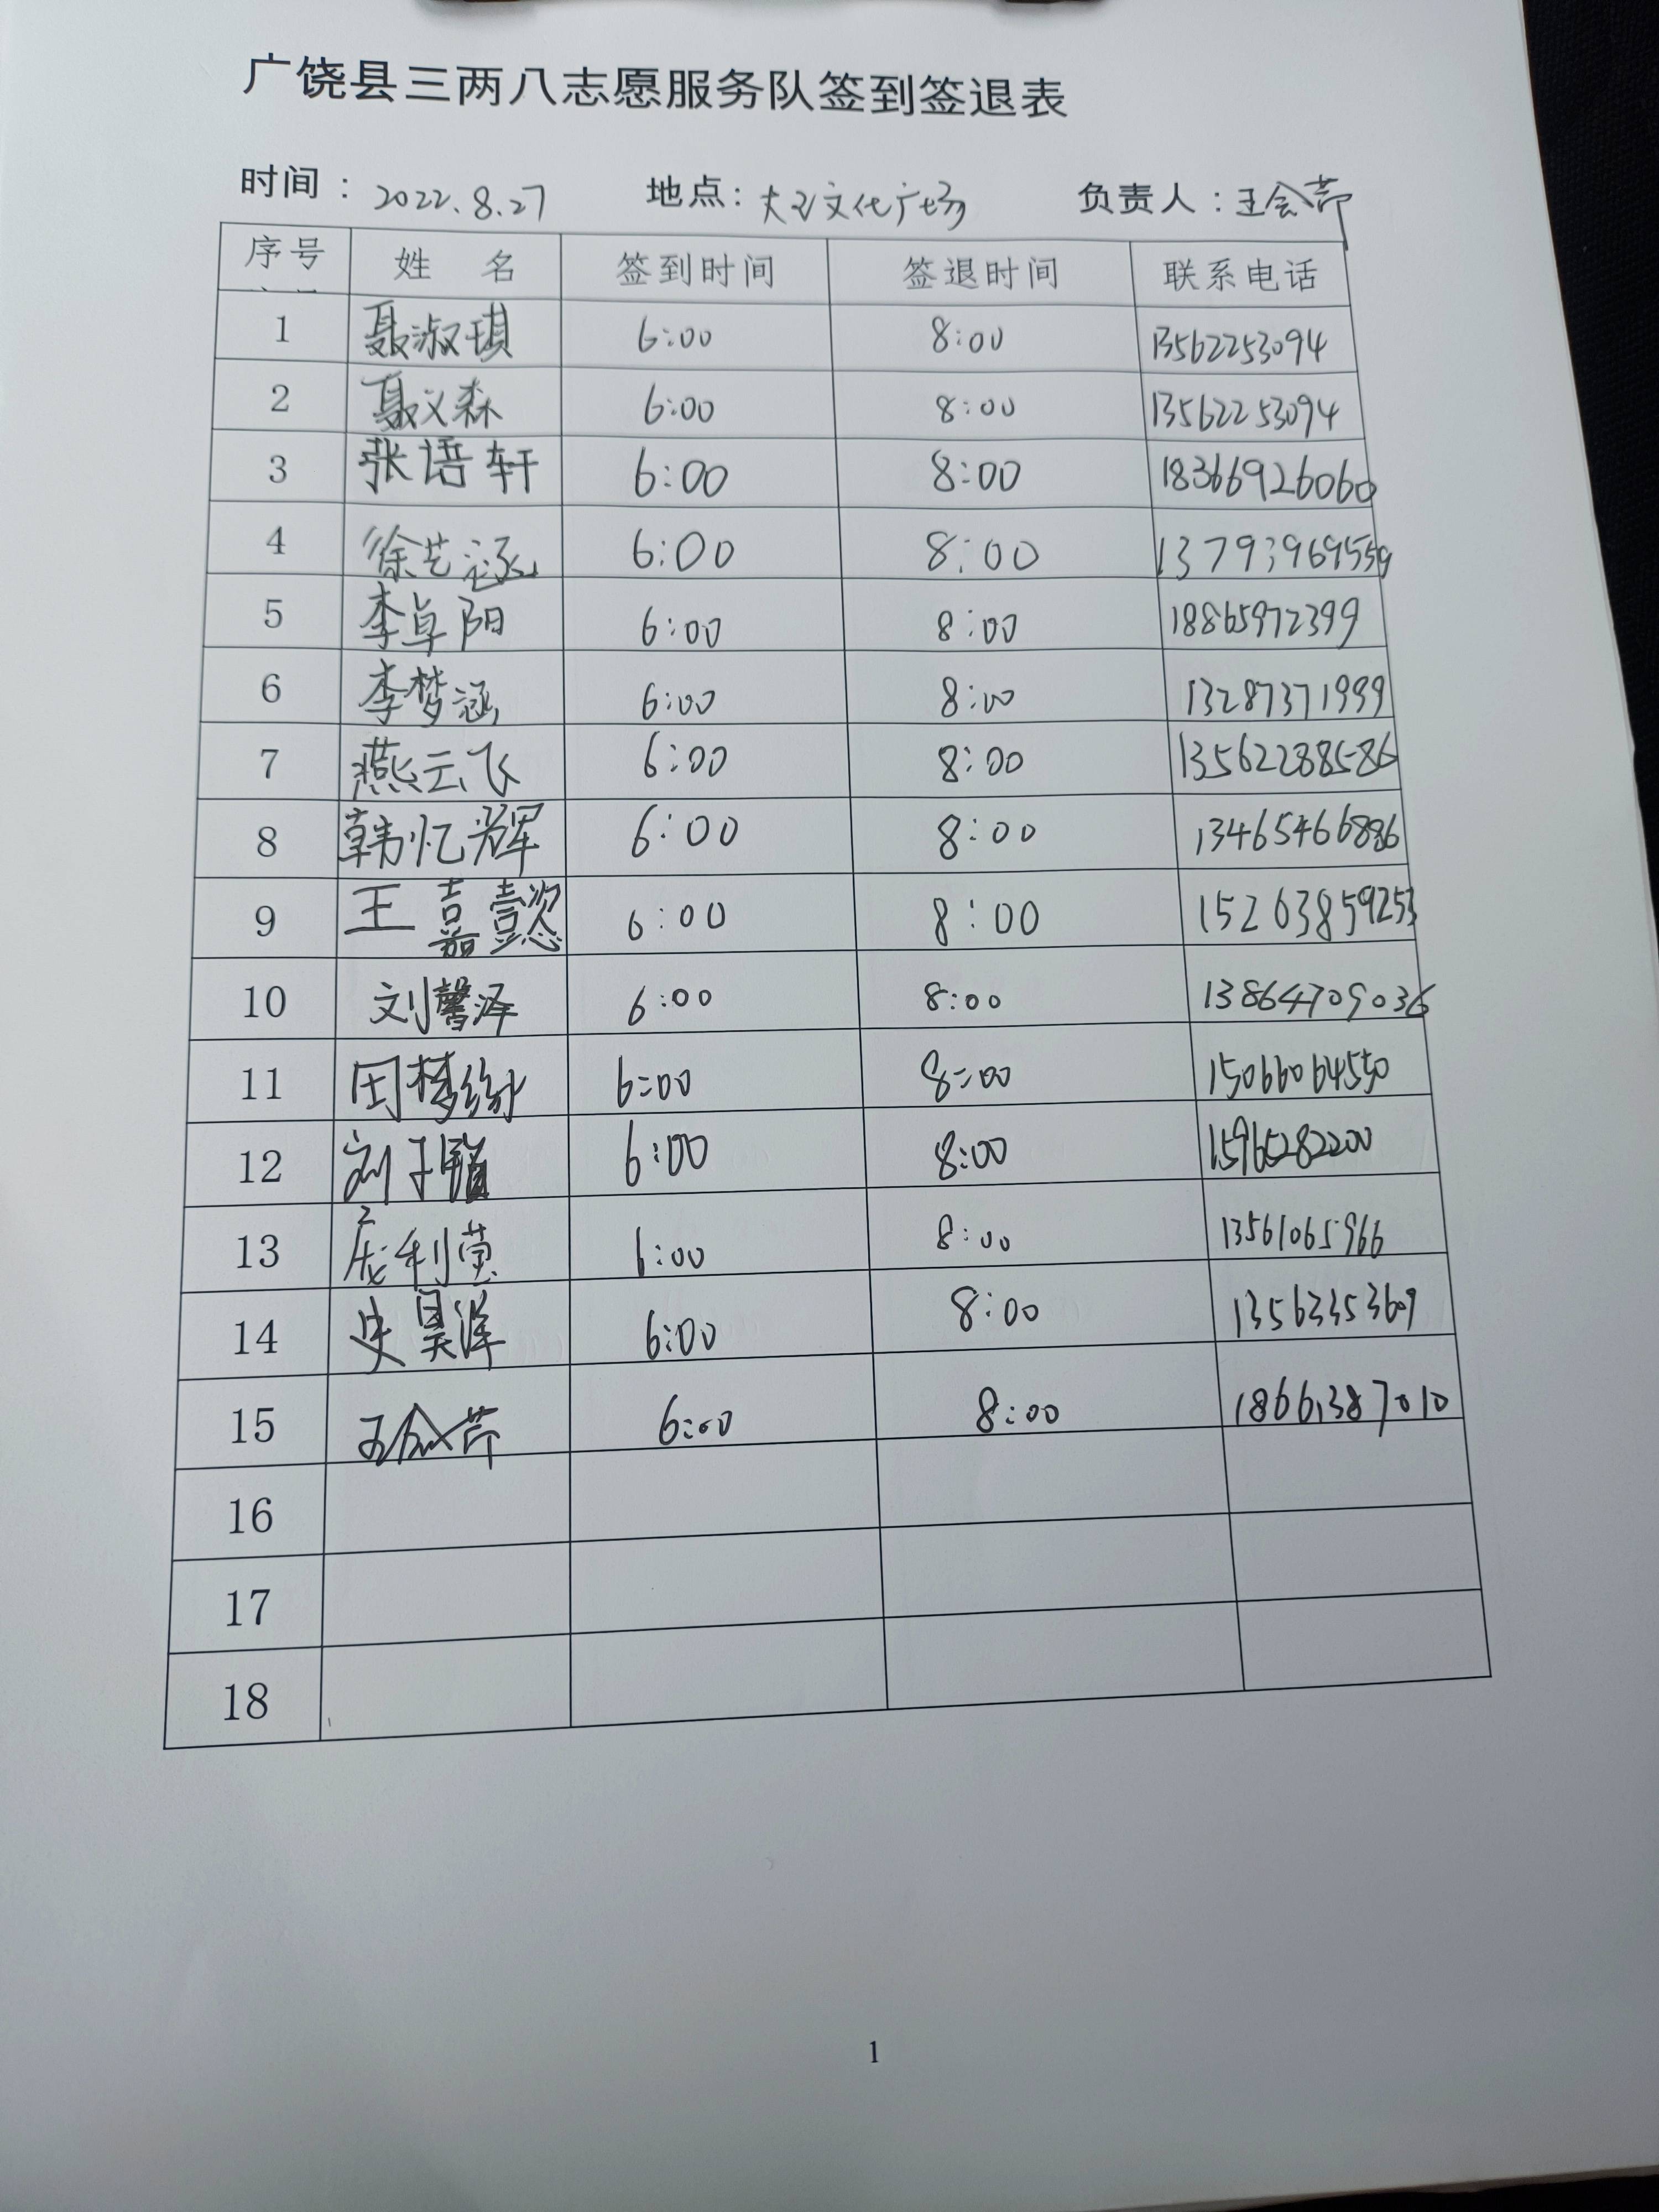 广饶县三两八志愿服务队签到签退表
时间： 2022.8.27 地点：大王文化广场 负责人：王会芹
序号 姓 名 签到时间 签退时间 联系电话
1 聂淑琪 6:00 8:00 13562253094
2 聂义森 6:00 8:00 13562253094
3 张语轩 6:00 8:00 18366926060
4 徐艺涵 6:00 8:00 13793969559
5 李卓阳 6:00 8:00 18865972399
6 李梦涵 6:00 8:00 13287371999
7 燕云飞 6:00 8:00 13562288586
8 韩忆辉 6:00 8:00 13465466886
9 王嘉懿 6:00 8:00 15263859253
10 刘馨泽 6:00 8:00 13864709036
11 田梦缘 6:00 8:00 15066064550
12 刘子 6:00 8:00 15965282200
13 庞利萱 6:00 8:00 13561065966
14 史昊洋 6:00 8:00 13562353609
15 王会芹 6:00 8:00 18661387010
16
17
18
1